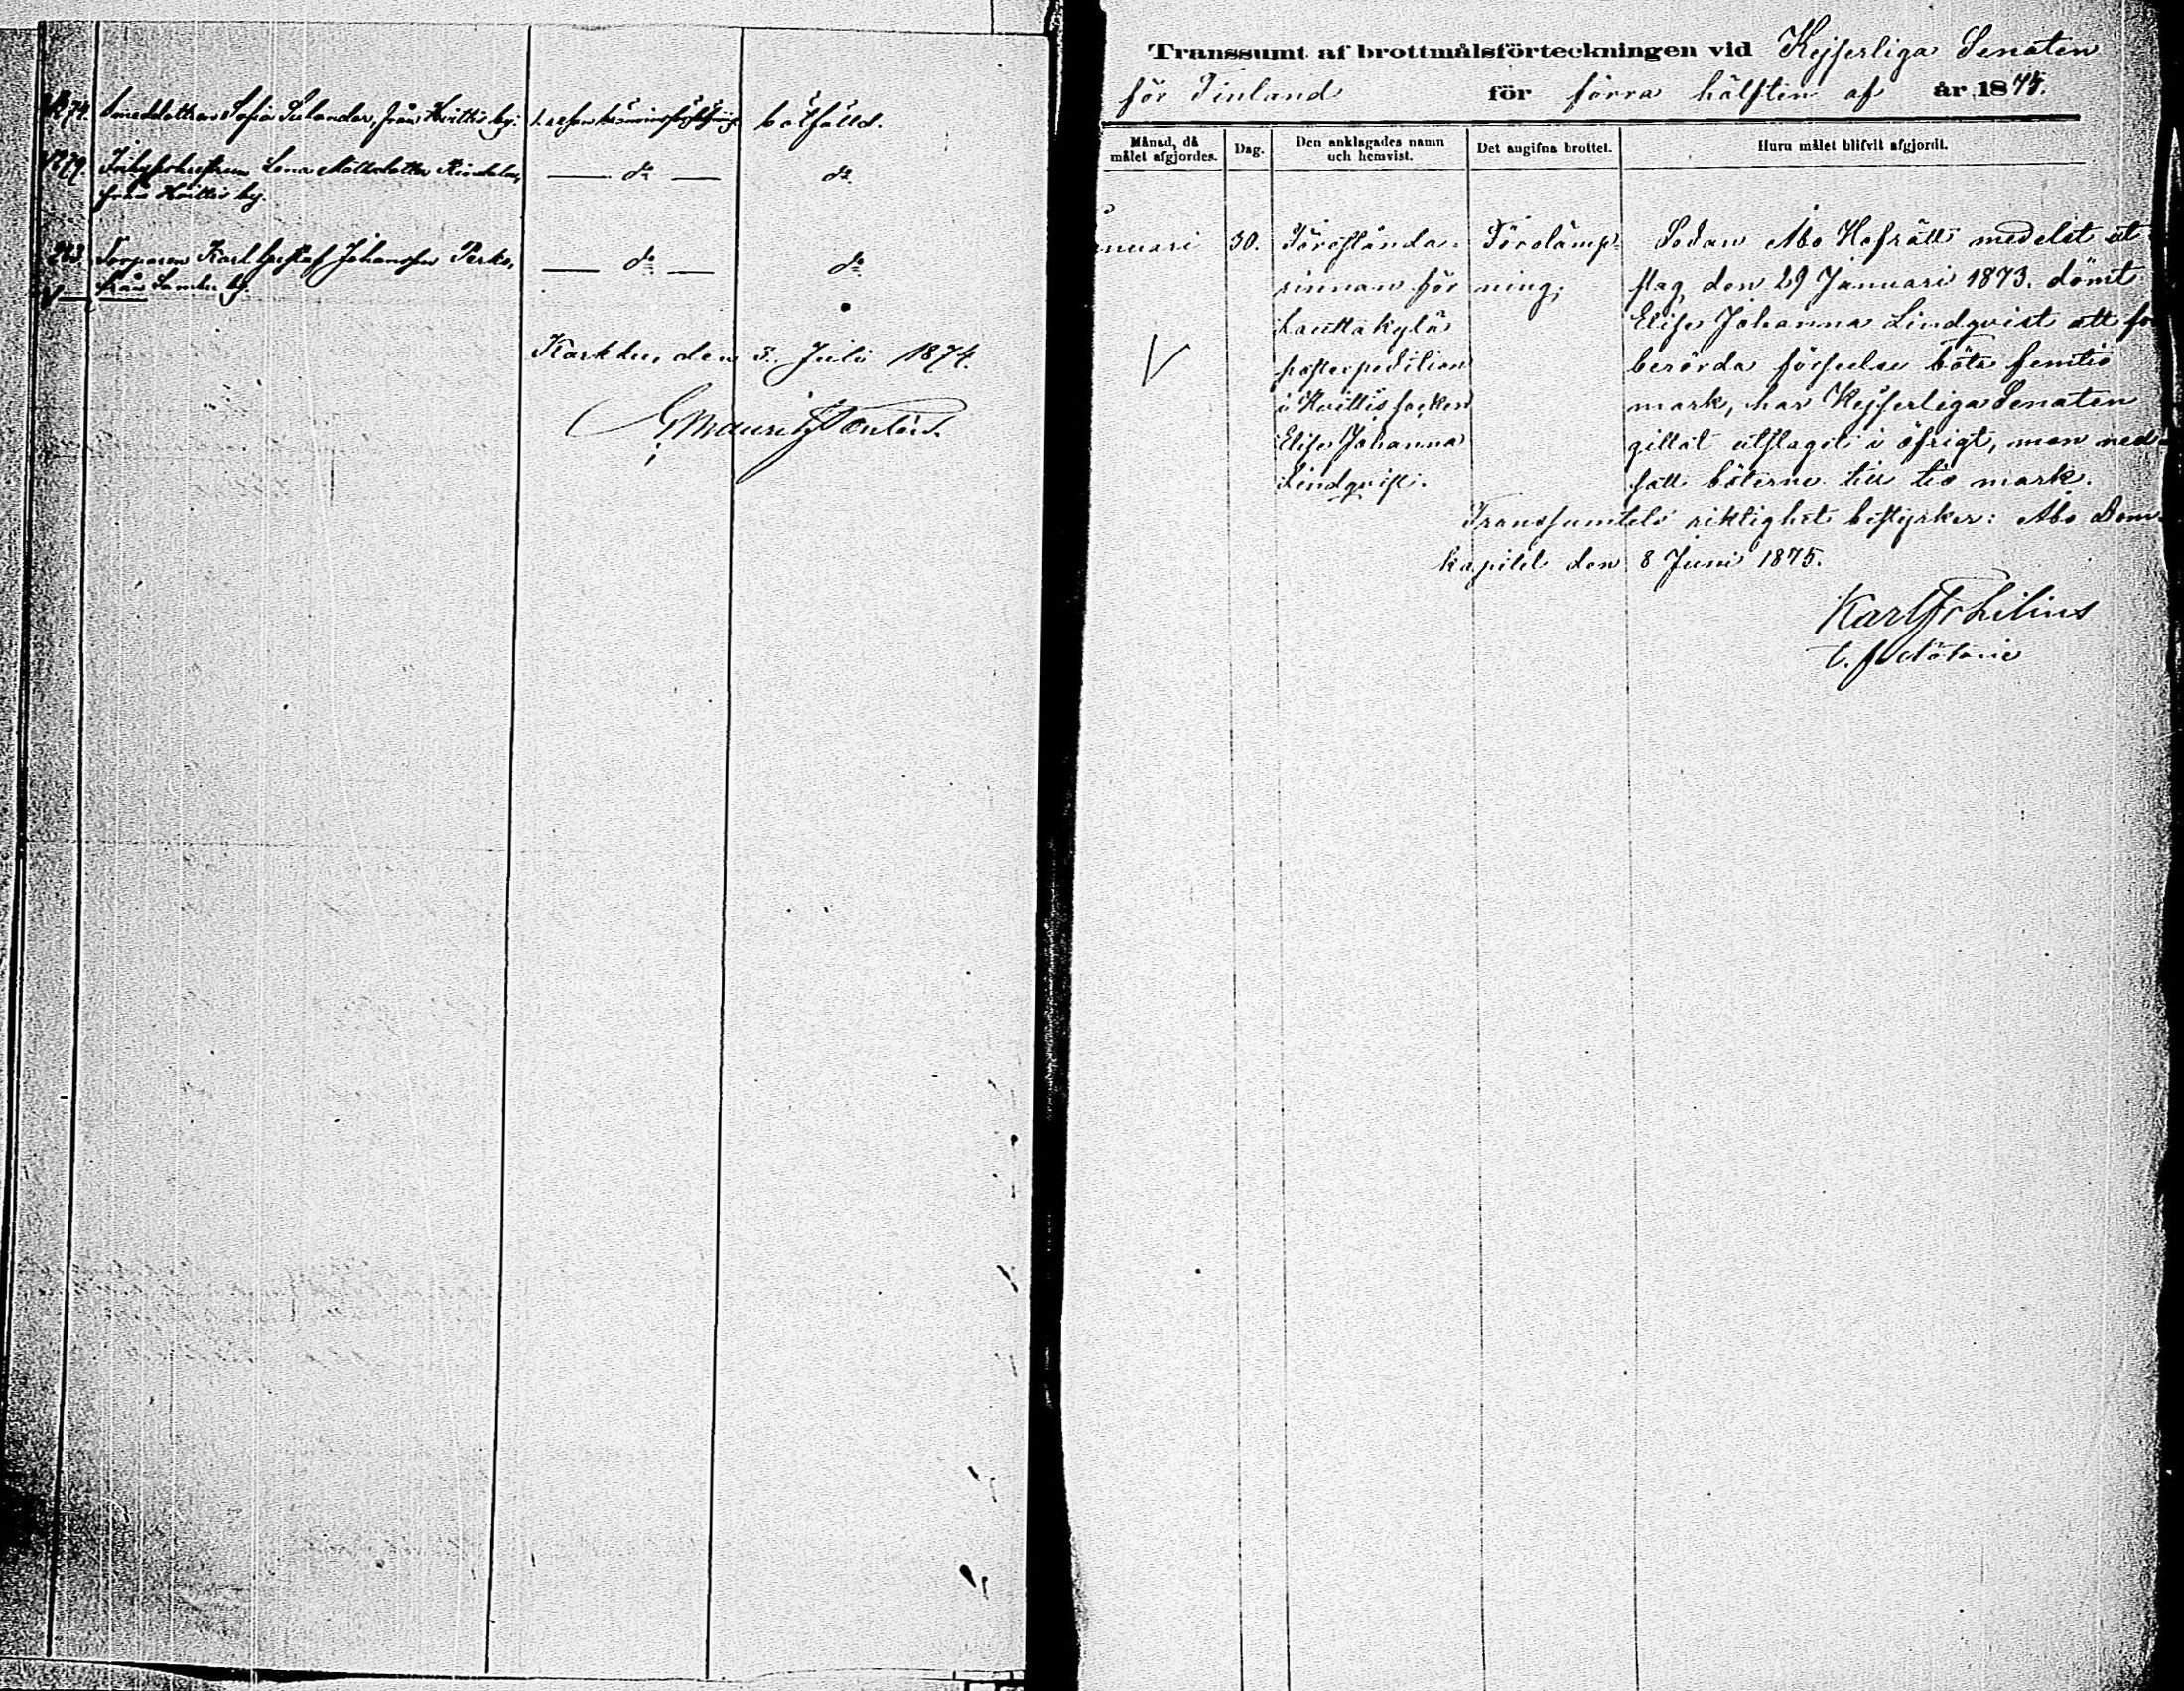 274. Smeddottren Sofia Selander, från Hvittis by: 1. resan bötfälld.
279. Lena Mattsdotter
från Hvittis by. — do — do
283. Torparen Karl Gustaf Johansson Perko,
från Samku by. — do — do
Karkku, den 3. Juli 1874.
G Mauritz Pontén.
Transsumt af brottmålsförteckningen vid Kejserliga Senaten
för Finland för förra hälften af år 1874.
Månad, då
målet afgjordes.
Dag.
Den anklagades namn
och hemvist.
Det angifna brottet.
Huru målet blifvit afgjordt.
nuari
30.
Föreståndarinnan
för
Lauttakylä
postexpedition
i Hvittis socken
Elise Johanna
Lindqvist.
Förolämp-
ning;
Sedan Åbo Hofrätt medelst ut-
slag den 29 Januari 1873. dömt
Elise Johanna Lindqvist att för
berörda förseelse böta femtio
mark, har Kejserliga Senaten
gillat utslaget i öfrigt, men ned-
satt böterne till tio mark.
Transsumtets riktighet bestyrker: Åbo Dom-
kapitel den 8 Juni 1875.
Karl Fr Lilius
t. f. Notarie